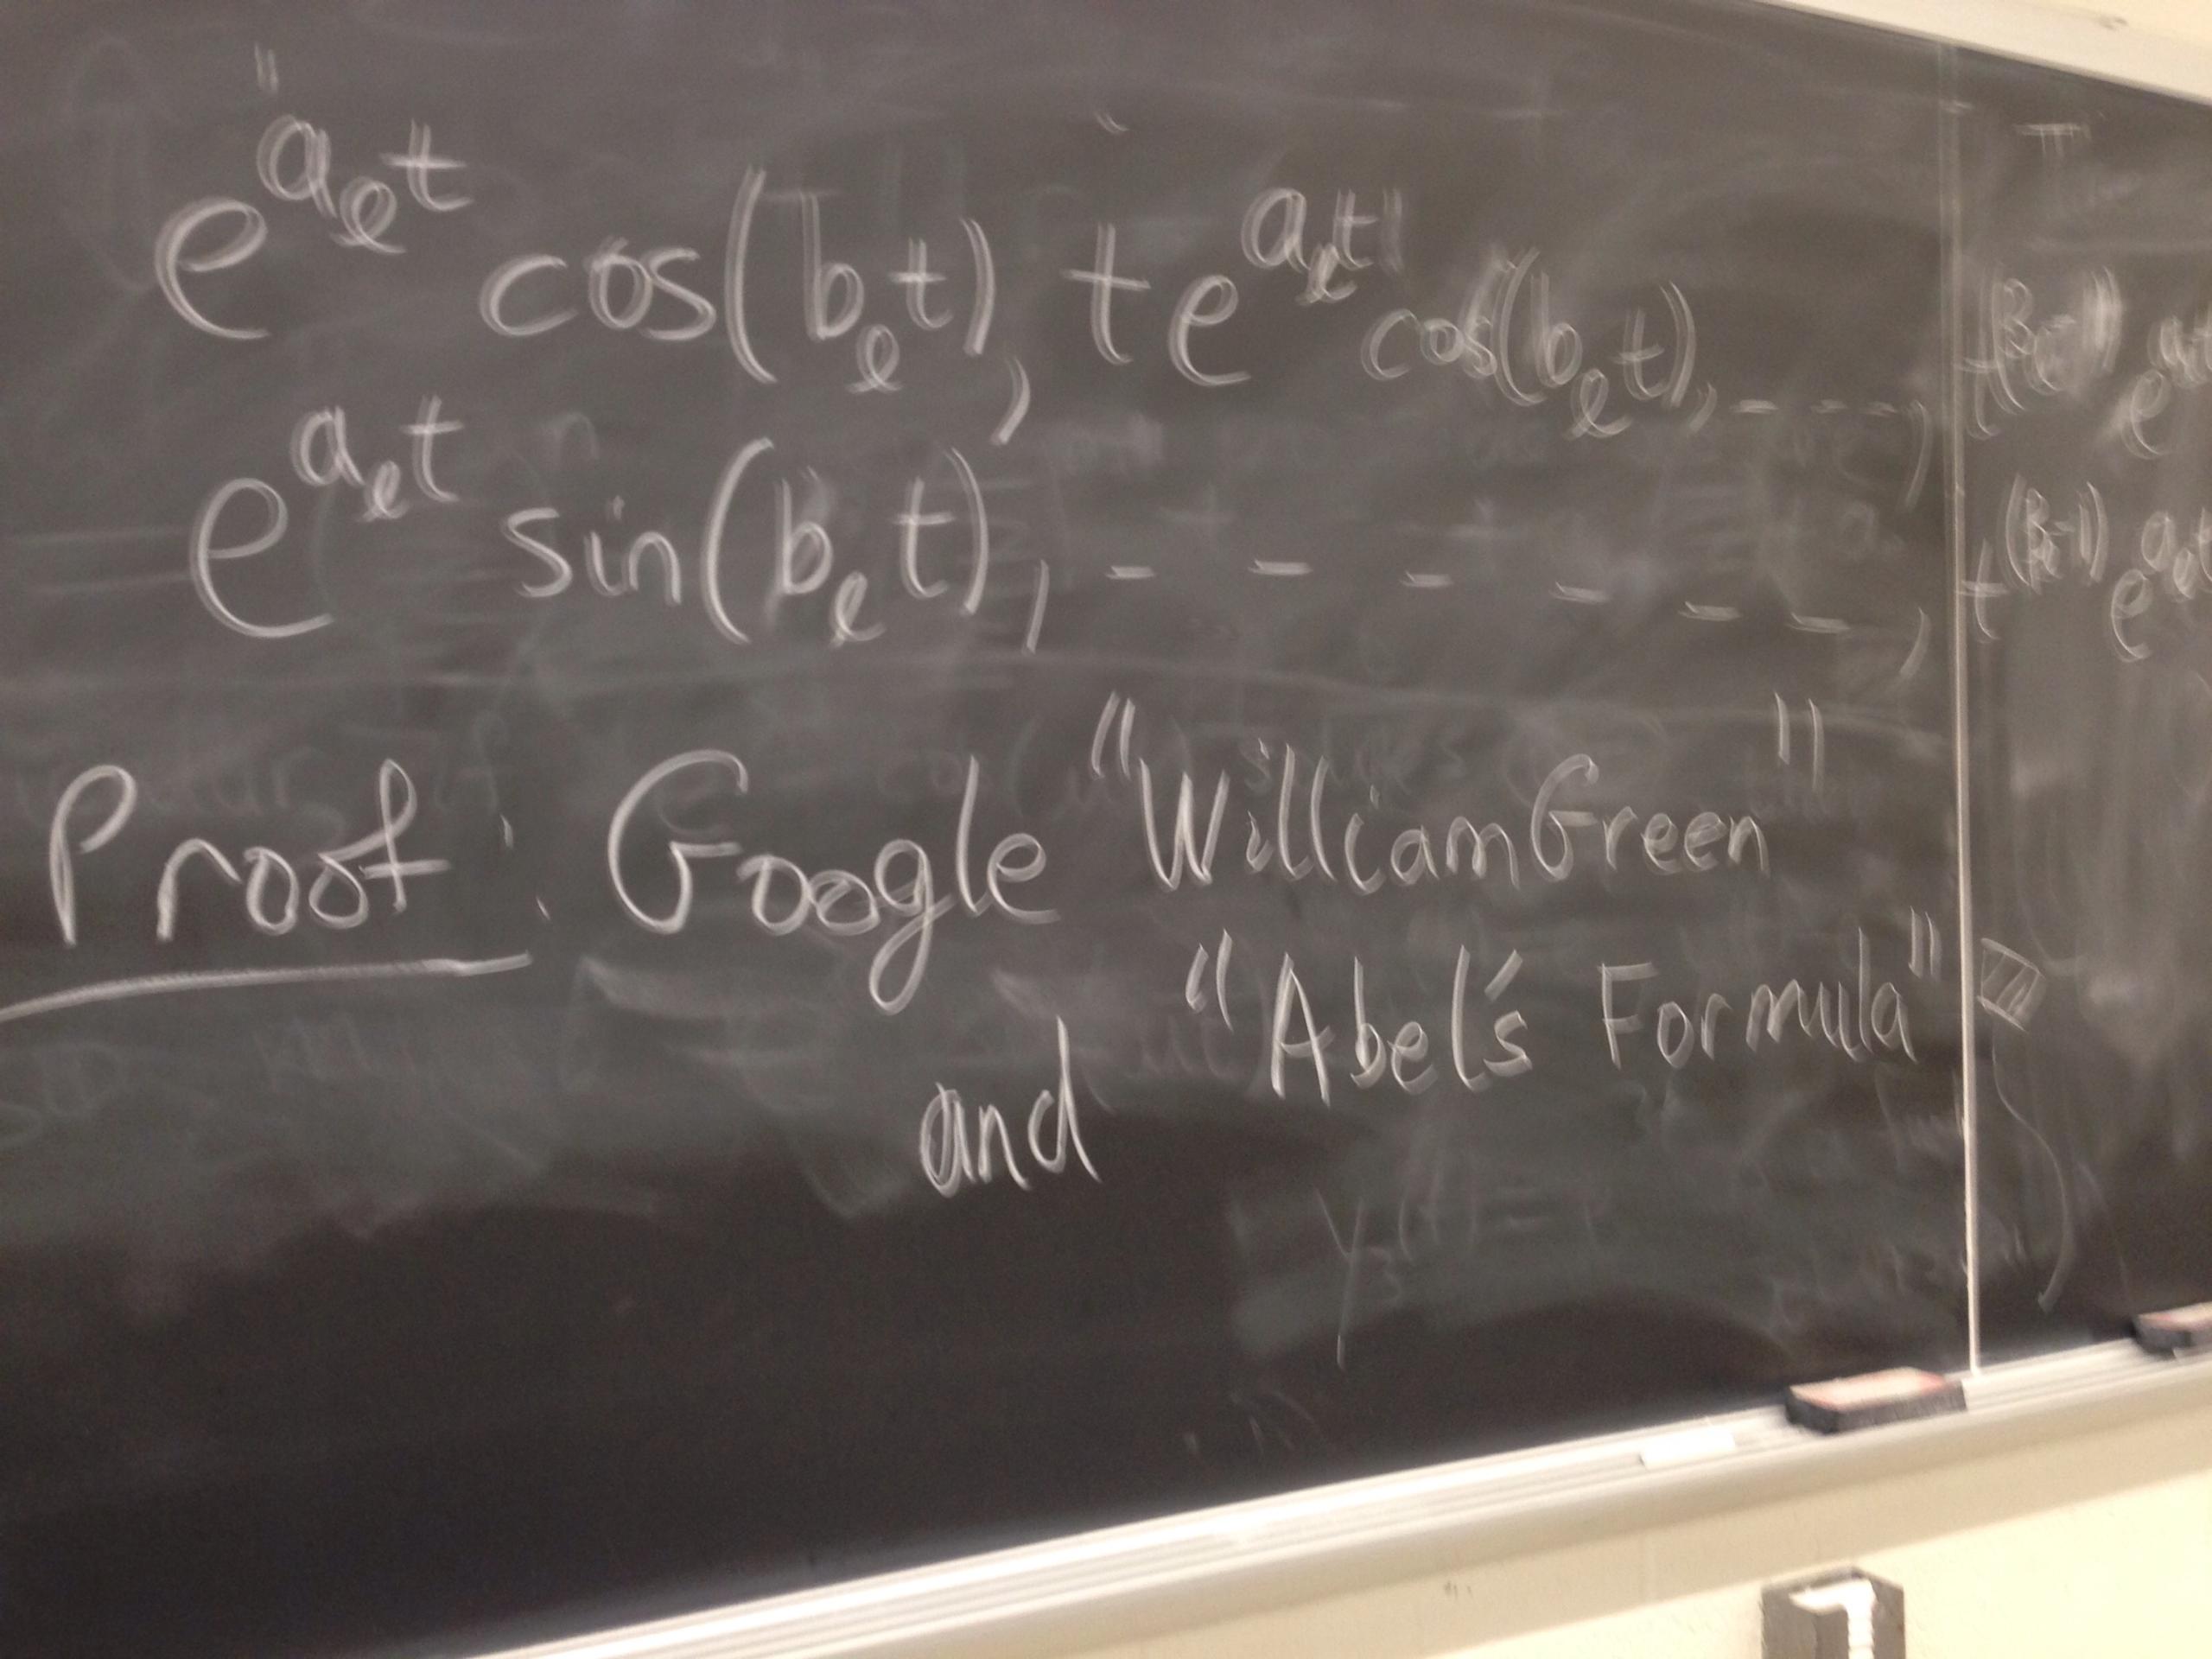 e^{a_ℓ t} cos(b_ℓ t), te^{a_ℓ t} cos(b_ℓ t), - - - -, t^{(β_ℓ-1)} e^{a_ℓ t}
e^{a_ℓ t} sin(b_ℓ t), - - - - - -, t^{(β_ℓ-1)} e^{a_ℓ t}
Proof: Google "William Green"
and "Abel's Formula"